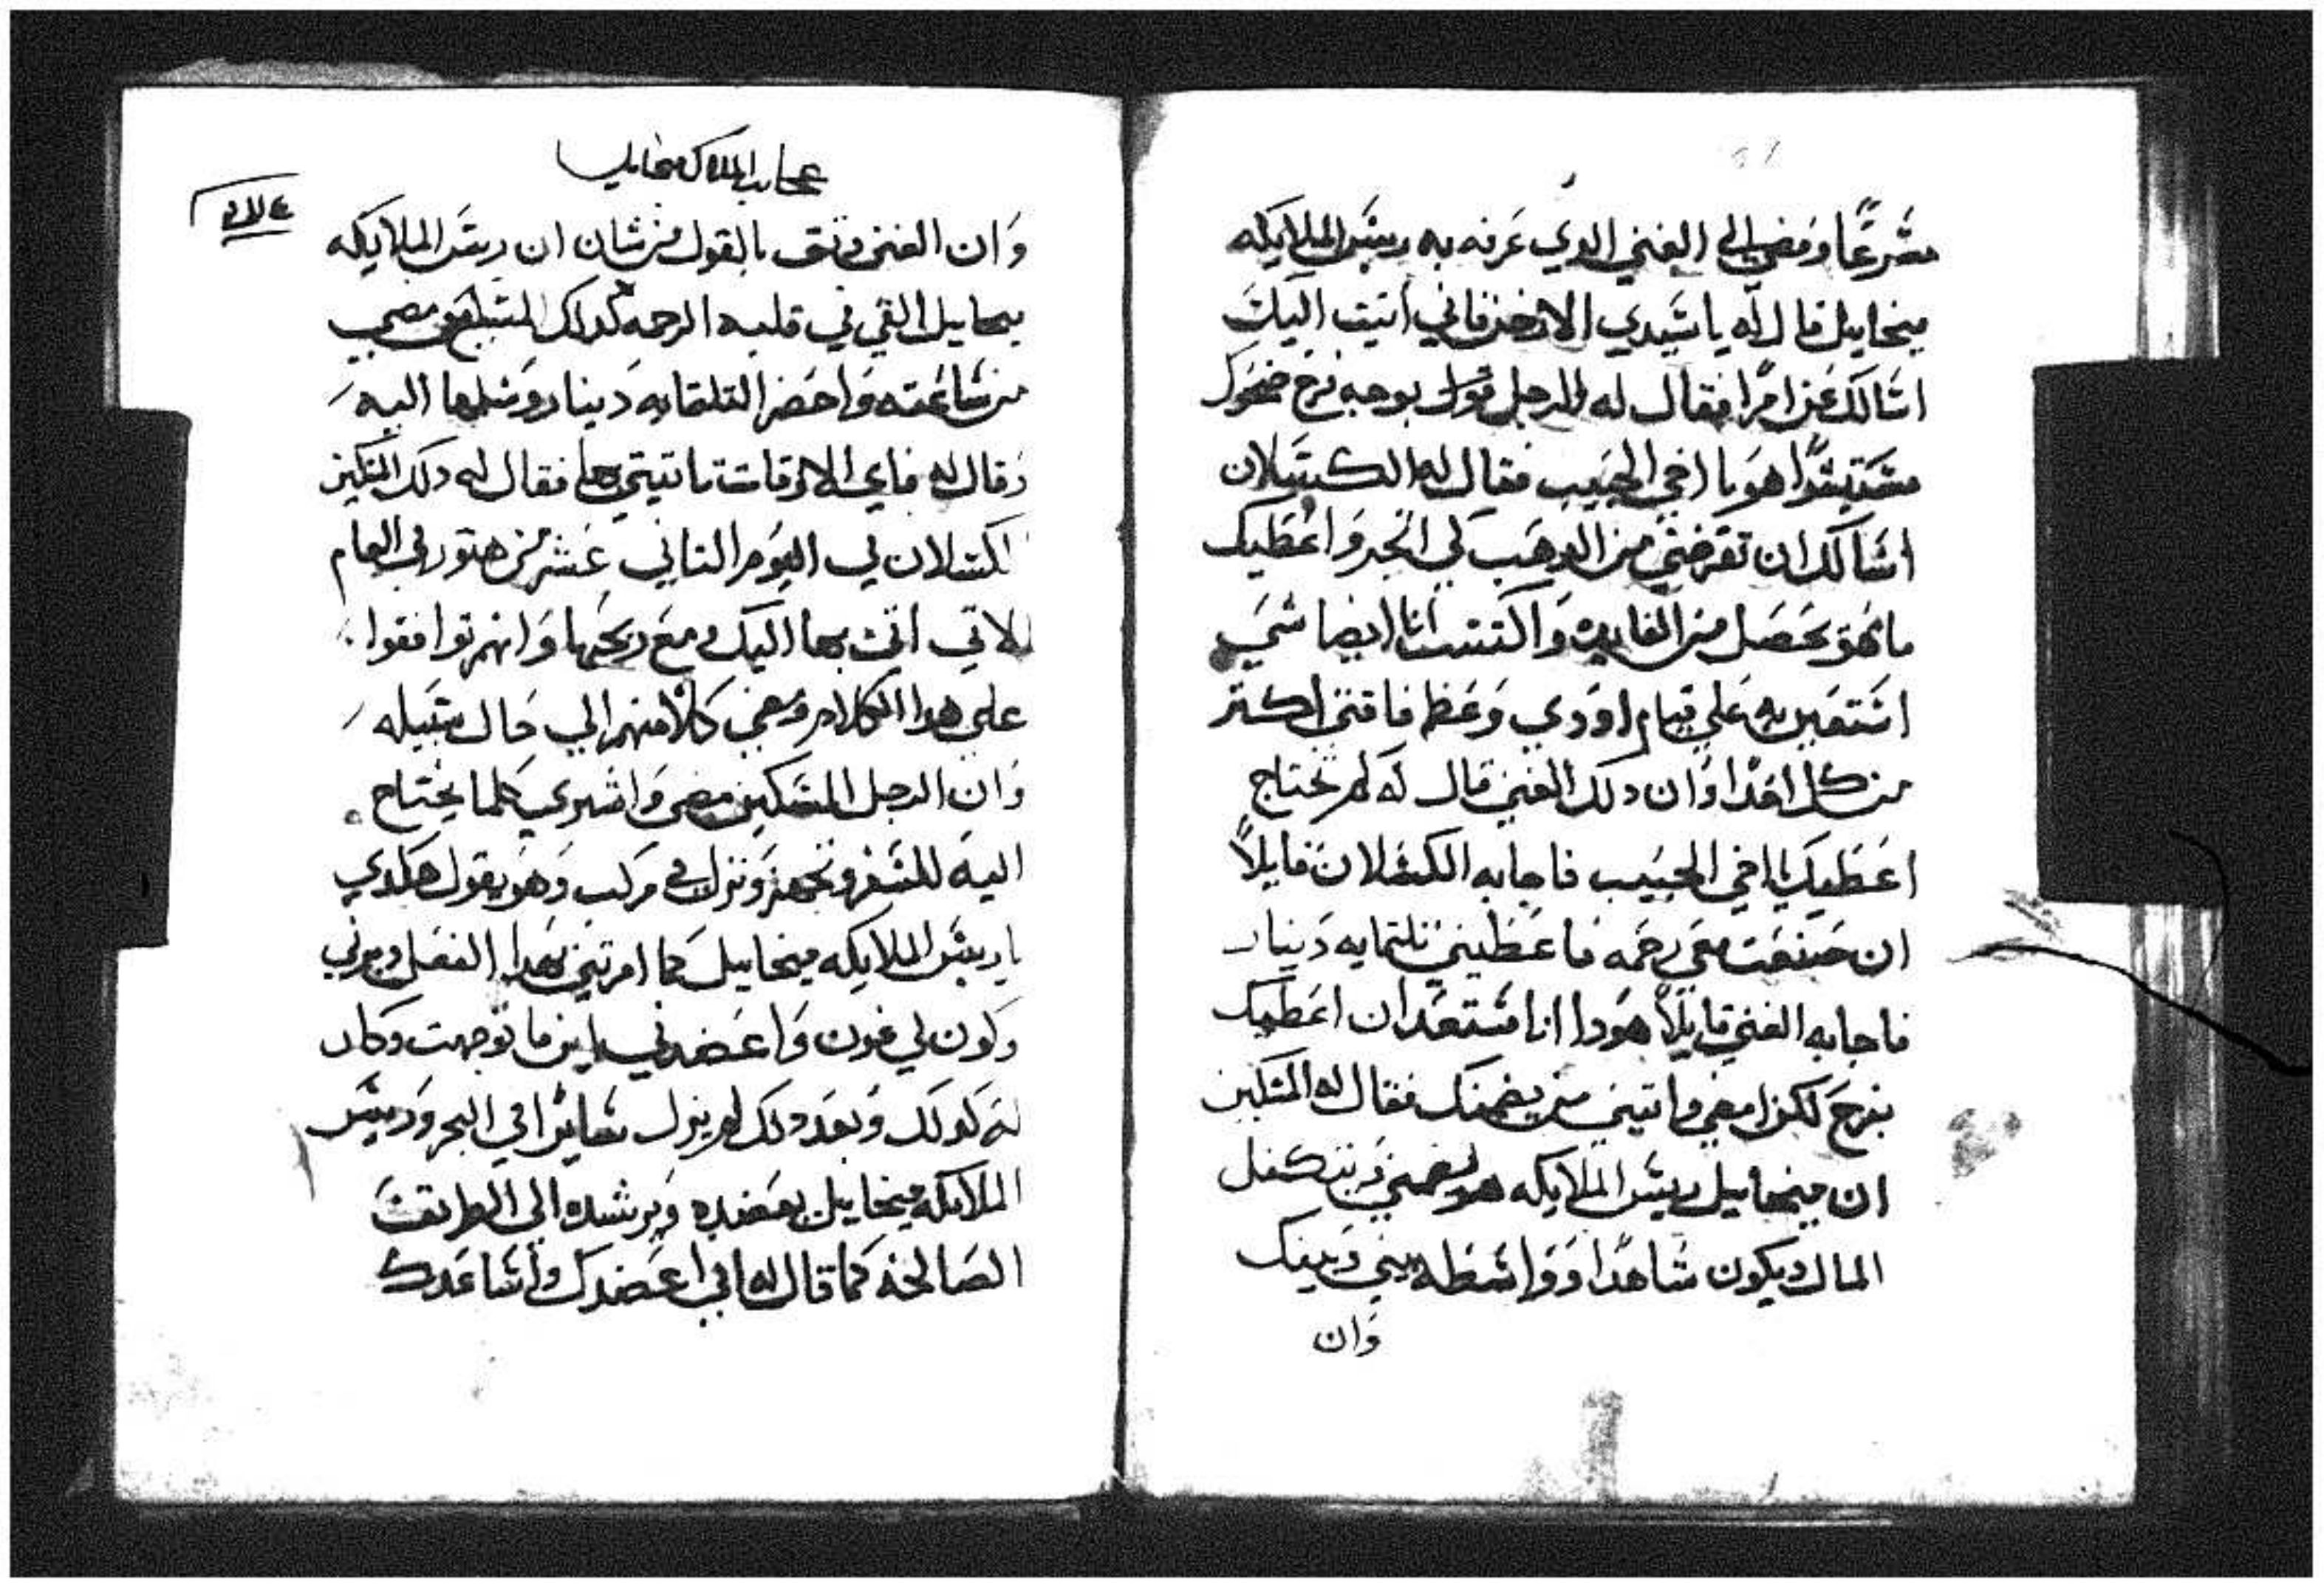 مسرعًا ومضي الي الغني الدي عرفه به ريس الملايكه
ميخاييل قال له يا سيدي الارخن فاني اتيت اليك
اسالك عن امرًا فقال له الرجل قول بوجه فرح ضحوك
هو يا اخي الحبيب فقال له الكسلان
اسالك ان تقرضني من الدهب لي اتجر واعطيك
مانهو يحصل من الفايده واكتسب انا ايضا شي
استعين به علي قيام اودي وعظم فاقتي اكتر
من كل احدًا وان دلك الغني قال له لم تحتاج
اعطيك يا اخي الحبيب فاجابه الكسلان قايلاً
ان صنعت معي رحمه فاعطيني تلتمايه دينار
فاجابه الغني قايلاً هودا انا مستعد ان اعطيك
بفرح لكن امضي واتيني من يضمنك فقال له المسكين
ان ميخاييل ريس الملايكه هو يضمني ويتكفل
المال ويكون شاهدًا وواسطه بيني وبينك
وان
عجايب الملاك ميخاييل
وان الغني وتق بالقول من شان ان ريس الملايكه
ميخاييل القي في قلبه الرحمه كدلك المبلغ مضي
من ساعته واحضر التلتمايه دينار وسلمها اليه
وقال له فاي الاوقات تاتيتي بها فقال له دلك المسكين
الكسلان في اليوم التاني عشر من هتور في العام
الاتي اتي بها اليك مع ربحها وانهم توافقوا
علي هدا الكلام ومضي كلاً منهم الي حال سبيله
وان الرجل المسكين مضي واشتري كلما يحتاج
اليه للسفر وتجهز ونزل في مركب وهو يقول هكدي
يا ريس الملايكه ميخاييل كما امرتني بهدا الفعل دبرني
وكون لي عون واعضدني اين ما توجهت وكان
له كدلك وبعد دلك لم يزل سايرًا في البحر وريس
الملايكه ميخاييل يعضده ويرشده الي الطريقت
الصالحه كما قال له اني اعضدك واساعدك